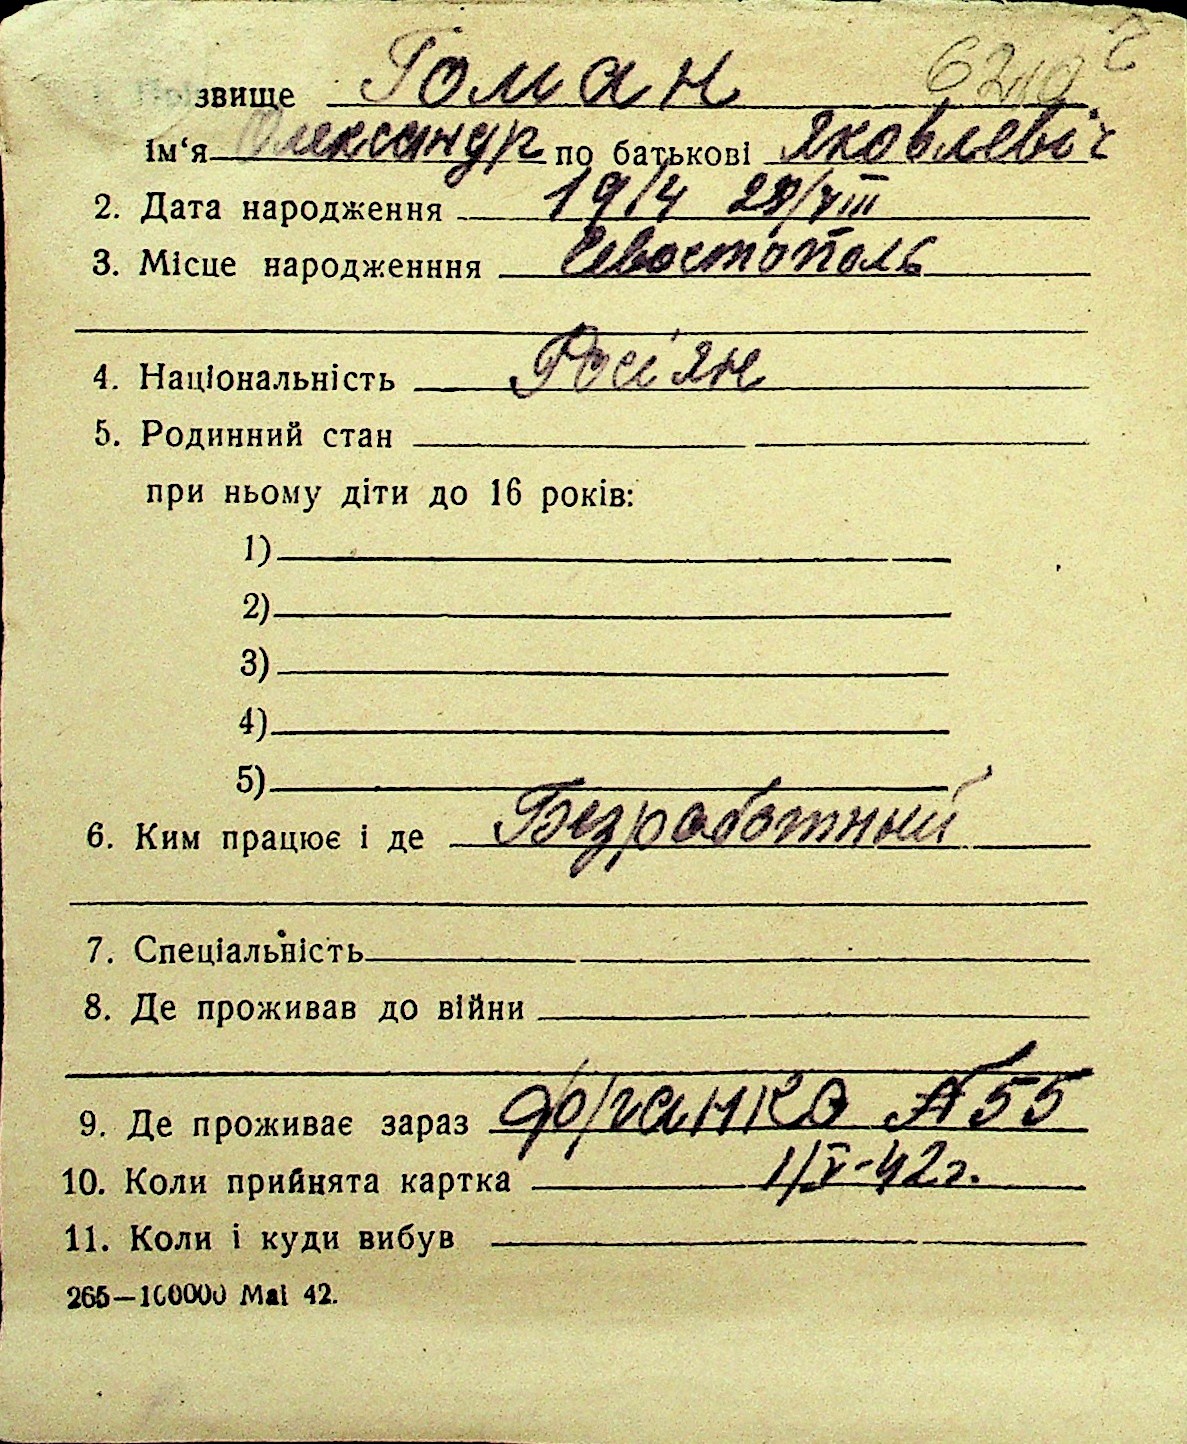 Прізвище Гоман
Ім‘я Олександр по батькові Яковлевіч
2. Дата народження 1914 28/VIII
3. Місце народженння Севостополь
4. Національність Росіян
5. Родинний стан
при ньому діти до 16 років:
1)
2)
3)
4)
5)
6. Ким працює і де Безработний
7. Спеціальність
8. Де проживав до війни
9. Де проживає зараз Франко № 55
10. Коли прийнята картка 1/V-42г.
11. Коли і куди вибув
265—100000 Mai 42.